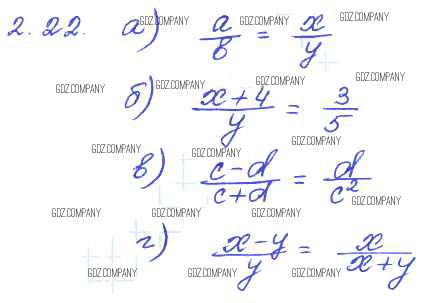 2.22. а) a/b = x/y
б) (x+4)/y = 3/5
в) (c-d)/(c+d) = d/c²
г) (x-y)/y = x/(x+y)
GDZ.COMPANY GDZ.COMPANY GDZ.COMPANY
GDZ.COMPANY GDZ.COMPANY GDZ.COMPANY GDZ.COMPANY
GDZ.COMPANY GDZ.COMPANY GDZ.COMPANY
GDZ.COMPANY GDZ.COMPANY GDZ.COMPANY GDZ.COMPANY
GDZ.COMPANY GDZ.COMPANY GDZ.COMPANY